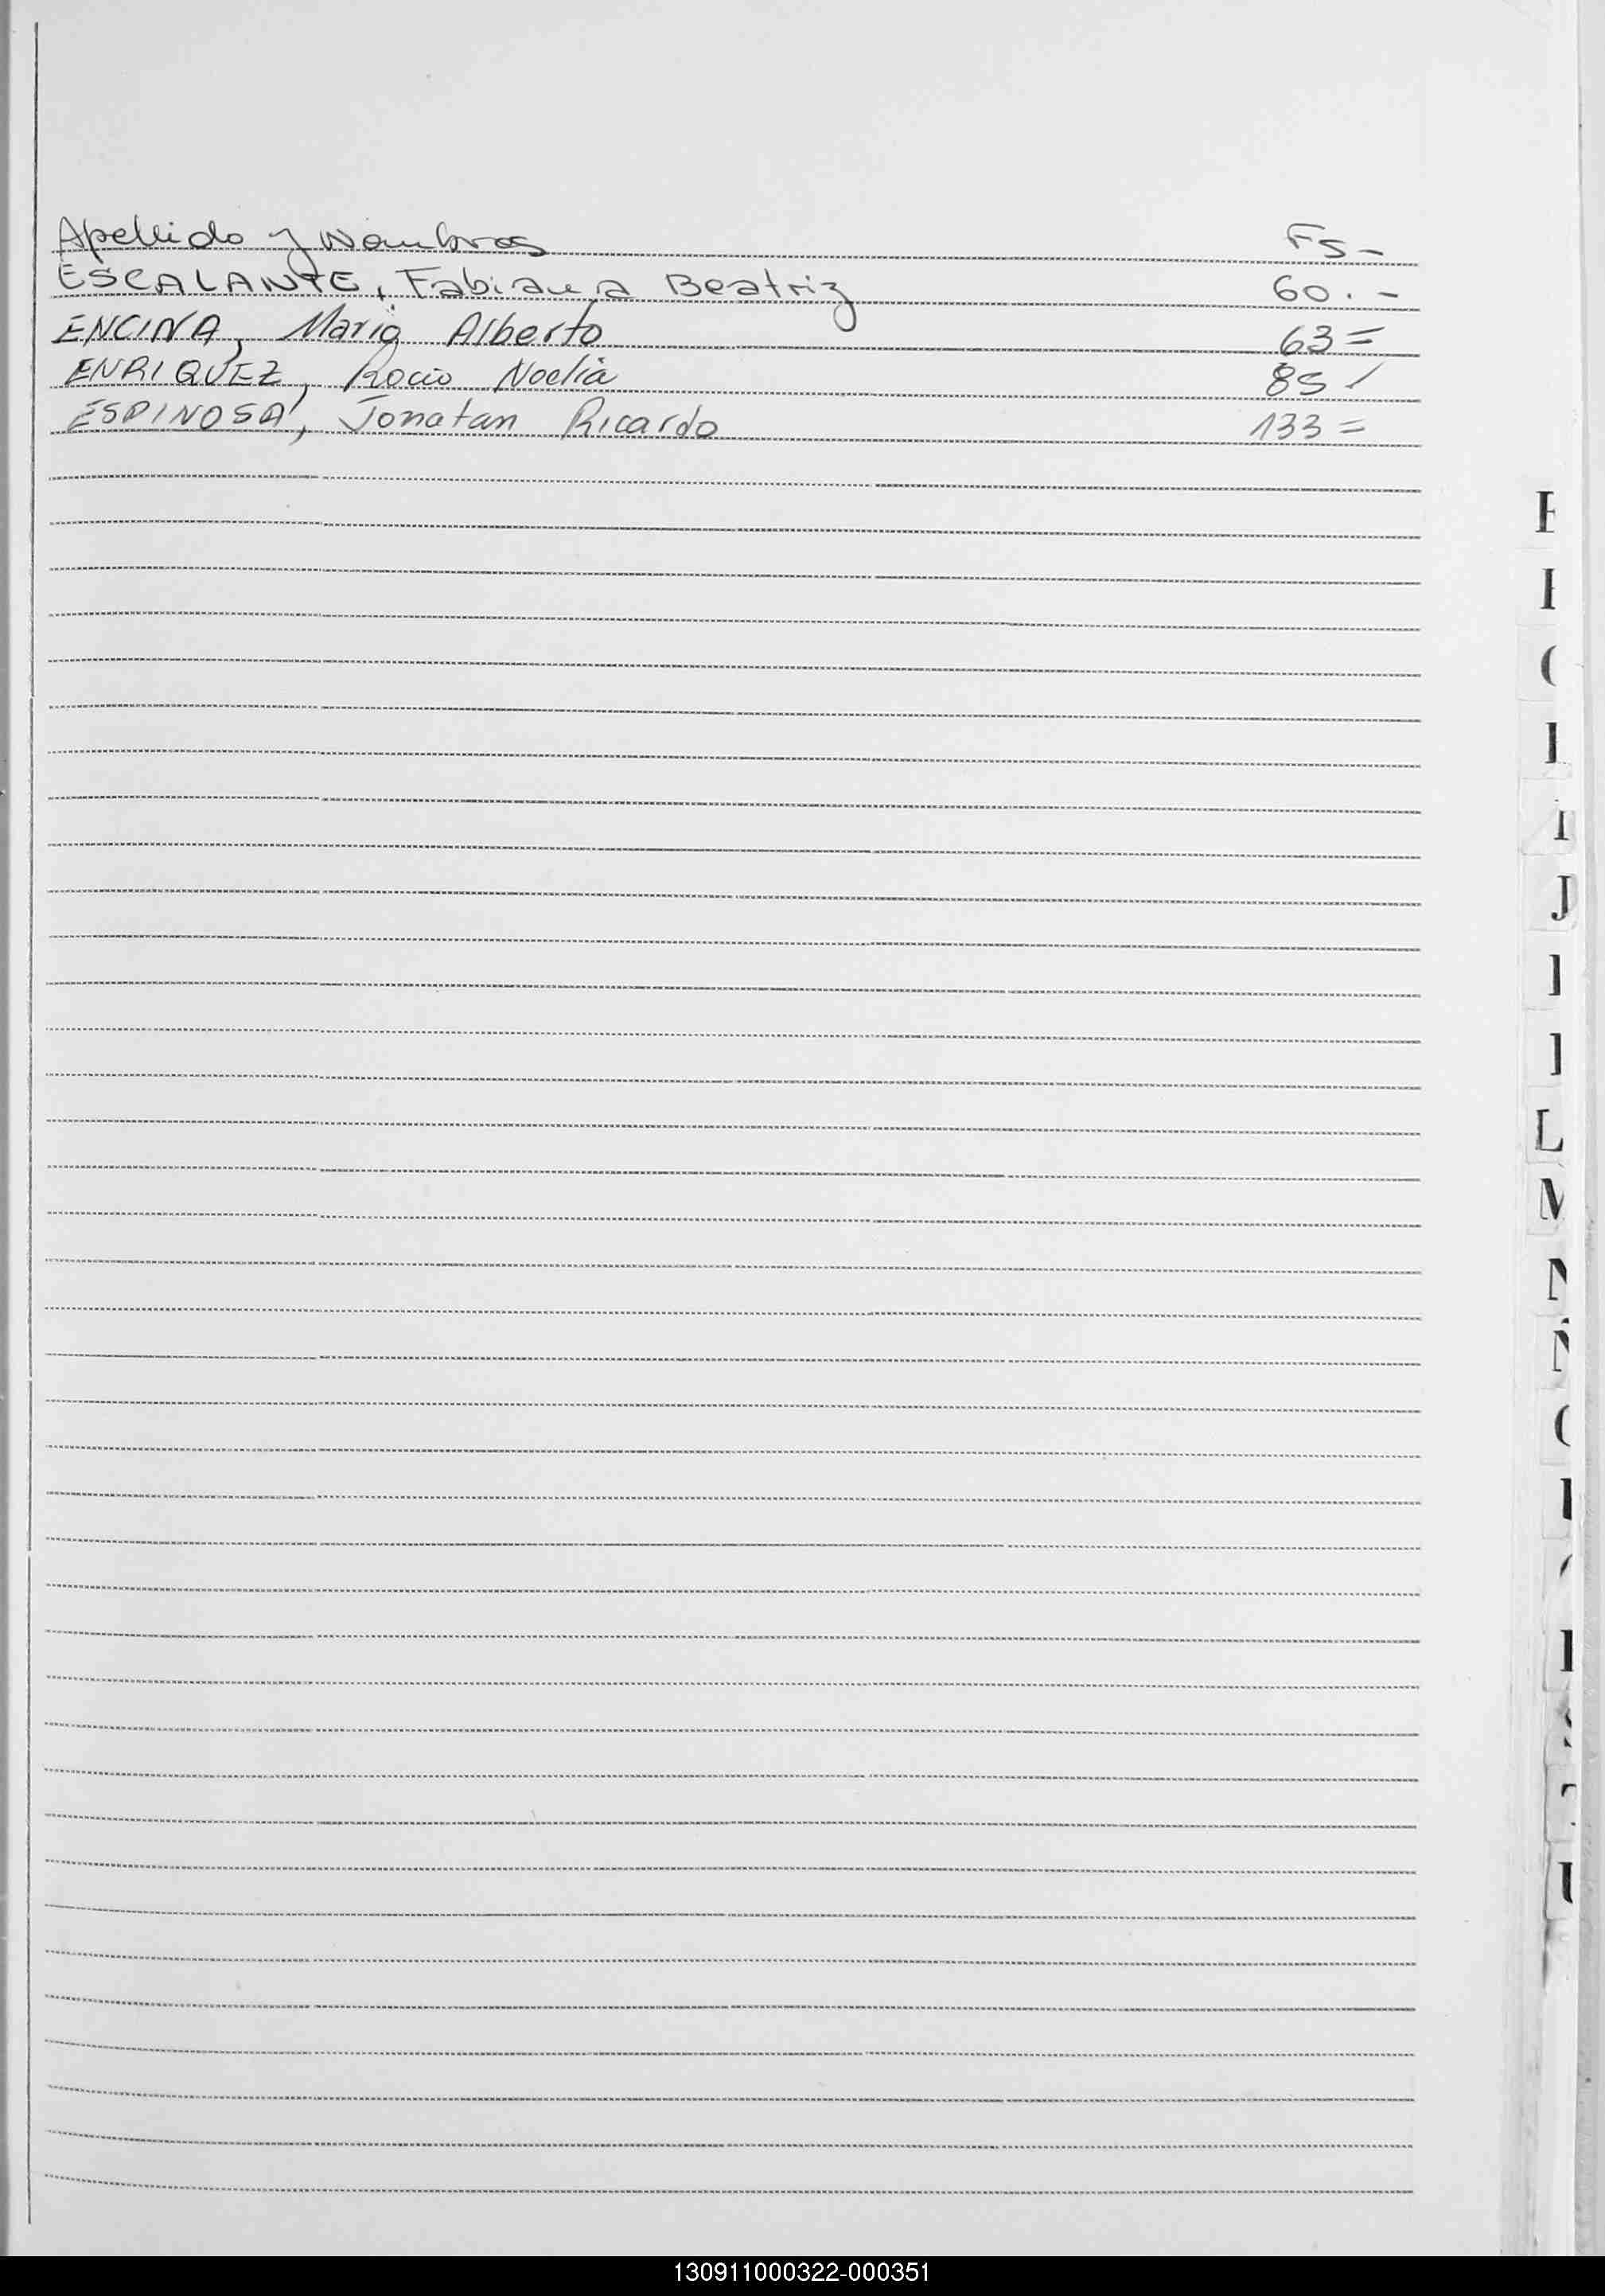 Apellido y Nombres Fs -
ESCALANTE, Fabiana Beatriz 60. -
ENCINA, Mario Alberto 63 =
ENRIQUEZ, Rocio Noelia 85 /
ESPINOSA, Jonatan Ricardo 133 =
J
L
M
N
Ñ
130911000322-000351